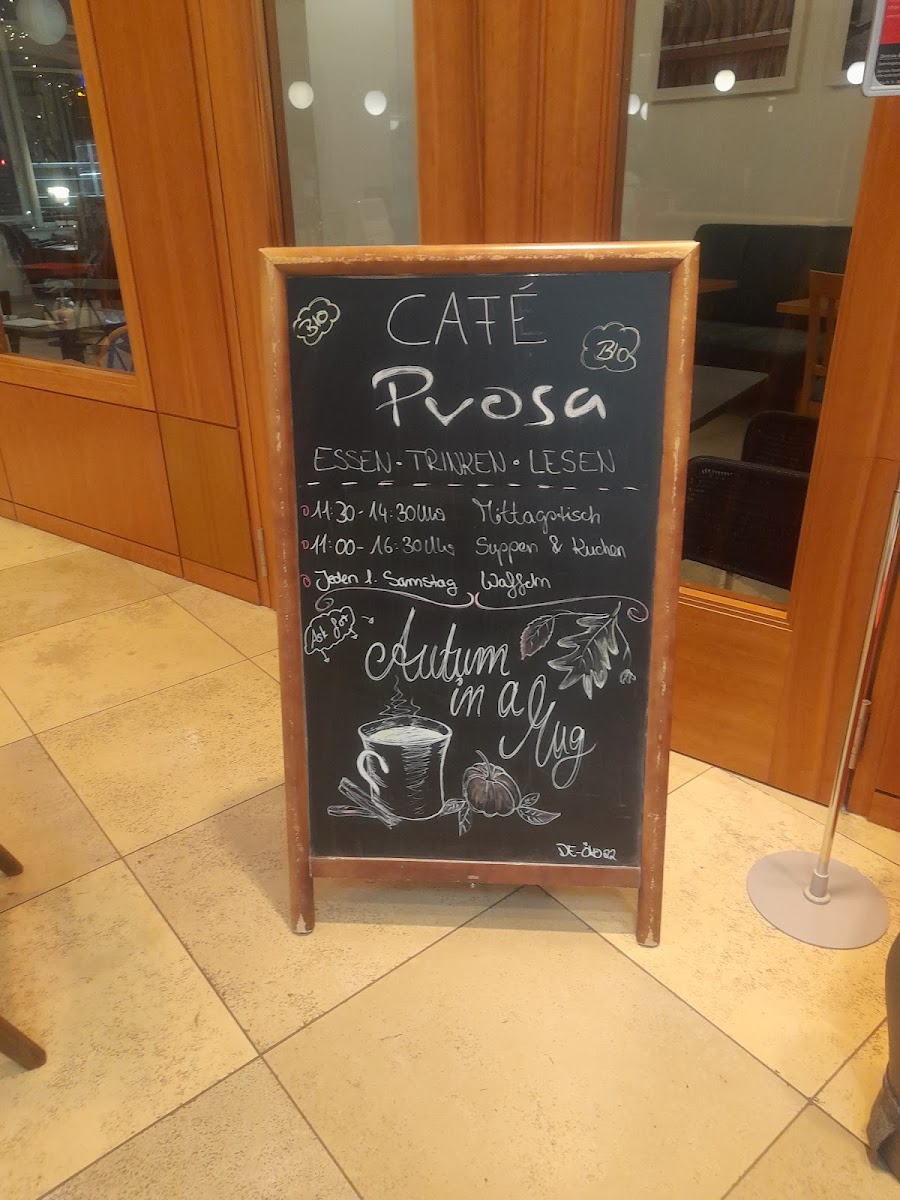 BIO
CAFÉ
BIO
Prosa
ESSEN · TRINKEN · LESEN
11:30 - 14:30 Uhr Mittagstisch
11:00 - 16:30 Uhr Suppen & Kuchen
Jeden 1. Samstag Waffeln
Ask for
Autum
in a
Mug
DE-ÖKO